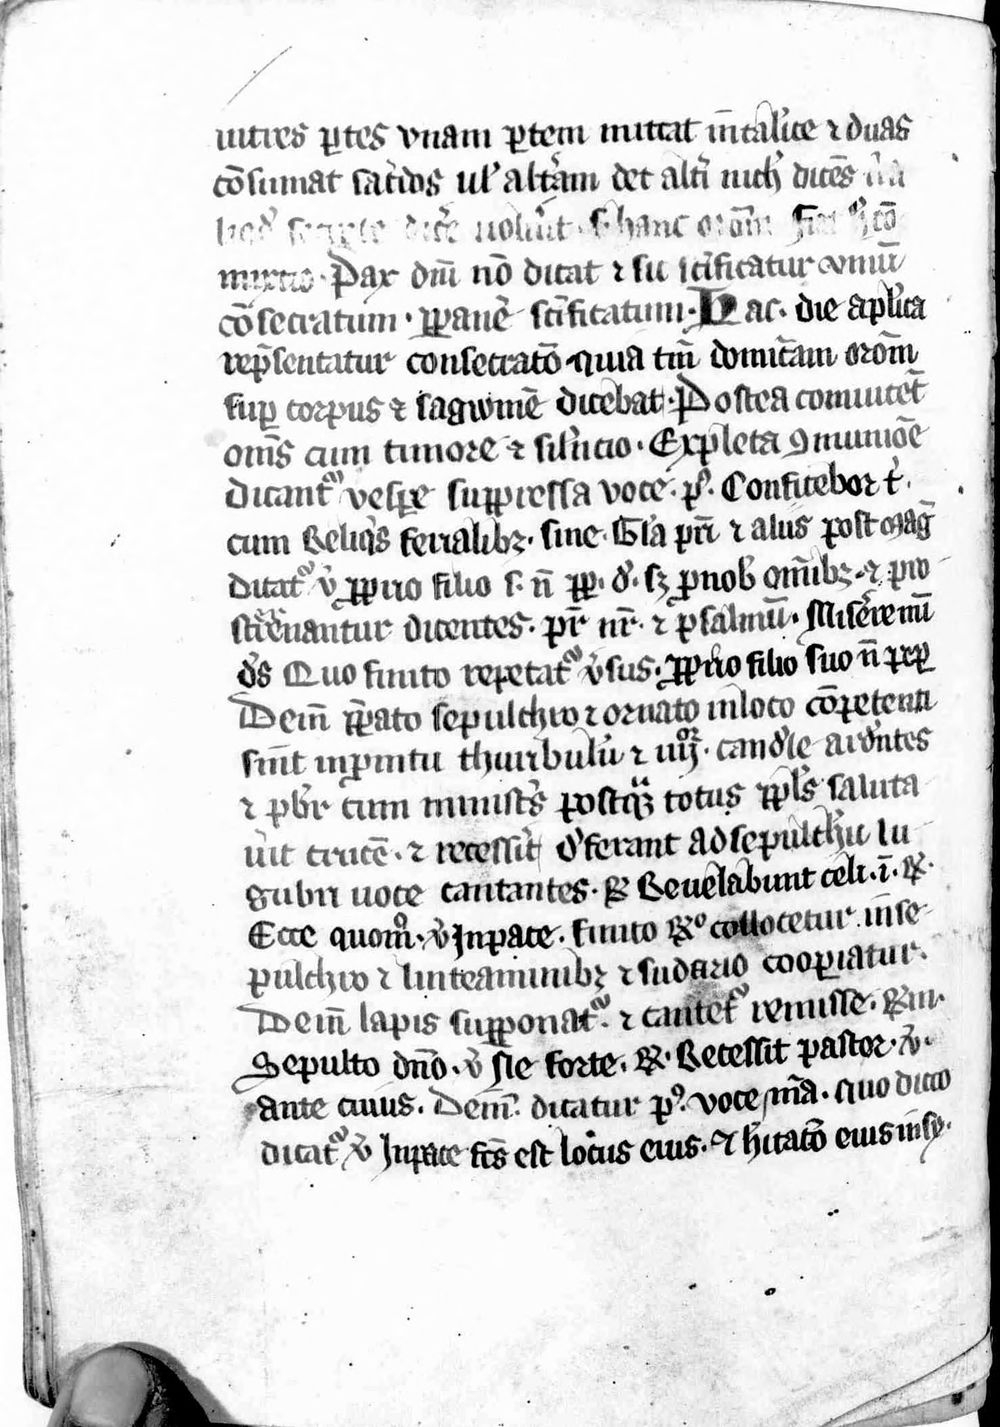 in tres ꝑtes vnam ꝑtem mittat in calice ⁊ duas
cōsumat sac̓dos ul̓ alt̓am det alt̓i nich̓ dicēs
hanc orōm
mixtio. Pax dm̄ nō dicat ⁊ sic sc̄ificatur vinū
cōsecratum. ꝑ panē sc̄ificatum. Hac. die aplīca
rep̄sentatur consecratō quia tm̄ domīcam orōm
suꝑ corpus ⁊ sagwinē dicebat. Postea comuicēt
om̄s cum timore ⁊ sil̓ncio. Expleta ꝯmuniōe
dicant᷑ vesꝑe suppressa voce. pͦ. Confitebor t̓.
cum Reliq̓s ferialibꝫ. sine. Gl̓a pr̄i ⁊ aliis post mag̅
dicat᷑ v̓ ꝓprio filio s. n̄ ꝑ. d̓. sꝫ ꝓ nob̓ om̄ibꝫ. ⁊ pro
st̓nantur dicentes. pr̄ nr̄. ⁊ psalmū. Mis̓ere mī
d̓s Quo finito repetat᷑ v̓sus. ꝓprio filio suo n̄ peꝑ
Dein̄ p̄parato sepulchro ⁊ ornato in loco cōpetenti
sint inpmtu thuribulū ⁊ iiij. candele ard̓ntes
⁊ pb̓r cum minist̓s postq̄ꝫ totus ppl̓s saluta
u̓it crucē. ⁊ recessit d̓ferant ad sepulch̓u lu
gubri uoce cantantes. ℟ Reuelabunt celi. i. ℟.
Ecce quomͦ. v̓ In pace. finito ℟ͦ collocetur in se
pulchro ⁊ linteaminibꝫ ⁊ sudario cooꝑiatur.
Dein̄ lapis supponat᷑. ⁊ cantet᷑ remisse. ℟m.
Sepulto dn̄o. v̓ Ne forte. ℟. Recessit pastor. v̓.
ante cuius. Dein̄. dicatur pͦ. voce m̄a. quo dicto
dicat᷑ v̓ In pace fc̄s est locus eius. ⁊ h̓itatō eius in sy.